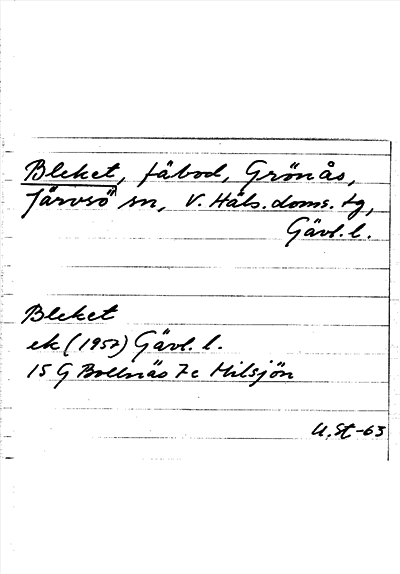 Bleket, fäbod, Grönås,
Järvsö sn, V. Häls. doms. tg,
Gävl. l.
Bleket
ek (1957) Gävl. l.
15 G Bollnäs 7c Milsjön
U.St-63